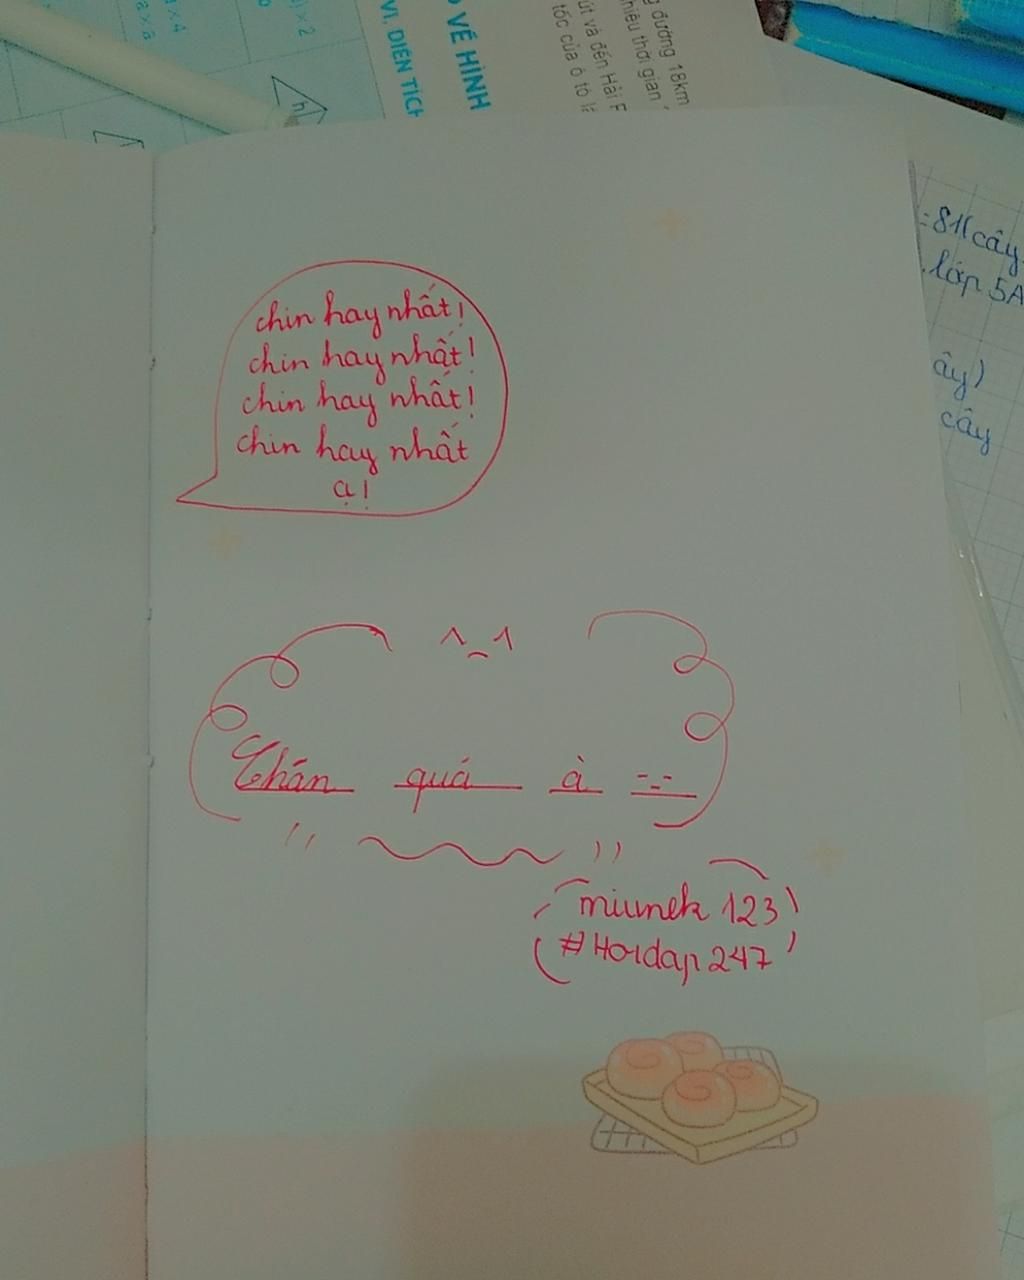 ) x 2
a x 4
a x a
h
VI, DIỆN TÍCH
VẼ HÌNH
g đường 18km
hiêu thời gian
út và đến Hải F
tốc của ô tô là
= 81 (cây
lớp 5A
ây)
cây
chin hay nhất!
chin hay nhất!
chin hay nhất!
chin hay nhất
ạ!
^_^
Chán quá à -.-
" ~ "
miumek 123
#Hoidap247